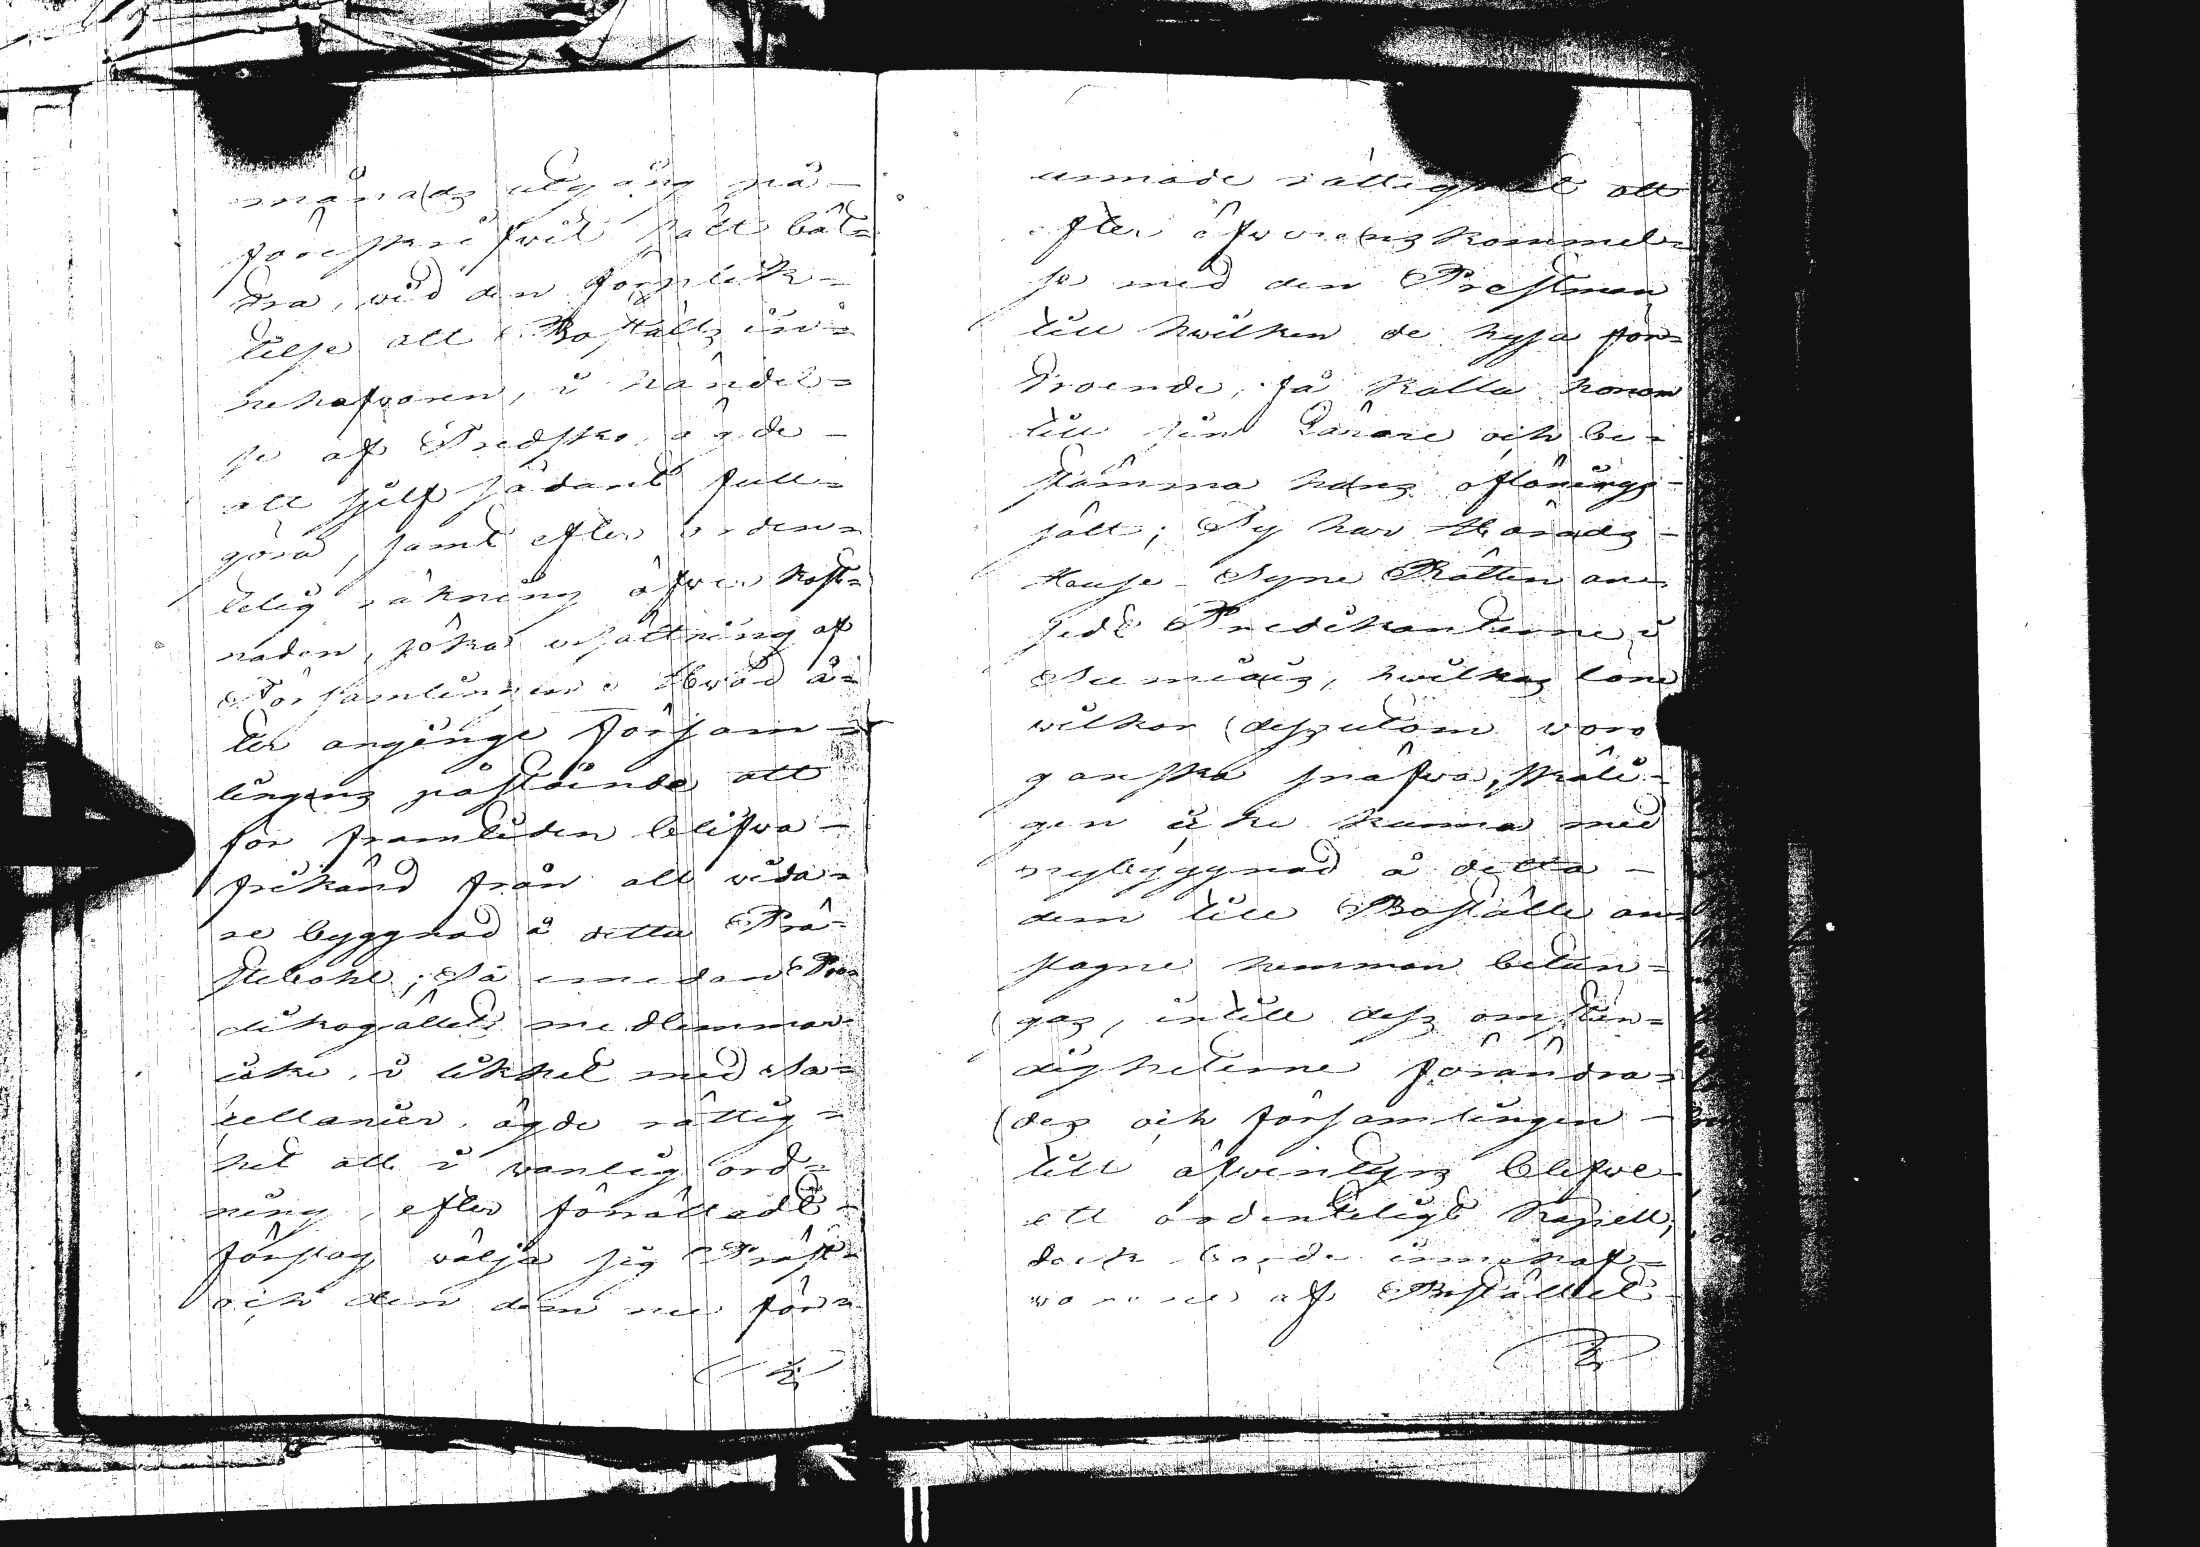 månads utgång på
föreskrifvit sätt bät=
tra, wid den förplik=
telse att Boställs in=
nehafvaren, i händel=
se af Tredsko, ägde
att sjelf sådant full=
göra, samt efter orden=
telig räkning öfver kost=
naden, söka ersättning af
Församlingen. Hvad å=
ter anginge Försam=
lingens påstående att
för framtiden blifva
frikänd från all vida=
re byggnad å detta Prä=
stebohl; Så emedan Pre=
dikogällets medlemmar
icke, i likhet med Sa=
cellanier, ägde rättig=
het att i vanlig ord=
ning, efter förrättadt
förslag välja sig Präst
och den dem nu för=
unnade rättighet att
efter öfverenskommel=
se med den Prestman
till hvilken de hysa för=
troende, få kalla honom
till sin Lärare och be=
stämma hans aflönings=
sätt; Ty har Härads
Husesyns Rätten an=
sedt Predikanterne i
Sumiais, hvilkas löne
wilkor dessutom voro
ganska snäfva, skäli=
gen icke kunna med
nybyggnad å detta
dem till Boställe an=
slagne hemman betun=
gas, intill dess omstän=
digheterne förändra=
des och församlingen
till äfventyrs blefve
ett ordenteligt Kapell,
dock borde innehaf=
varen af Bostället